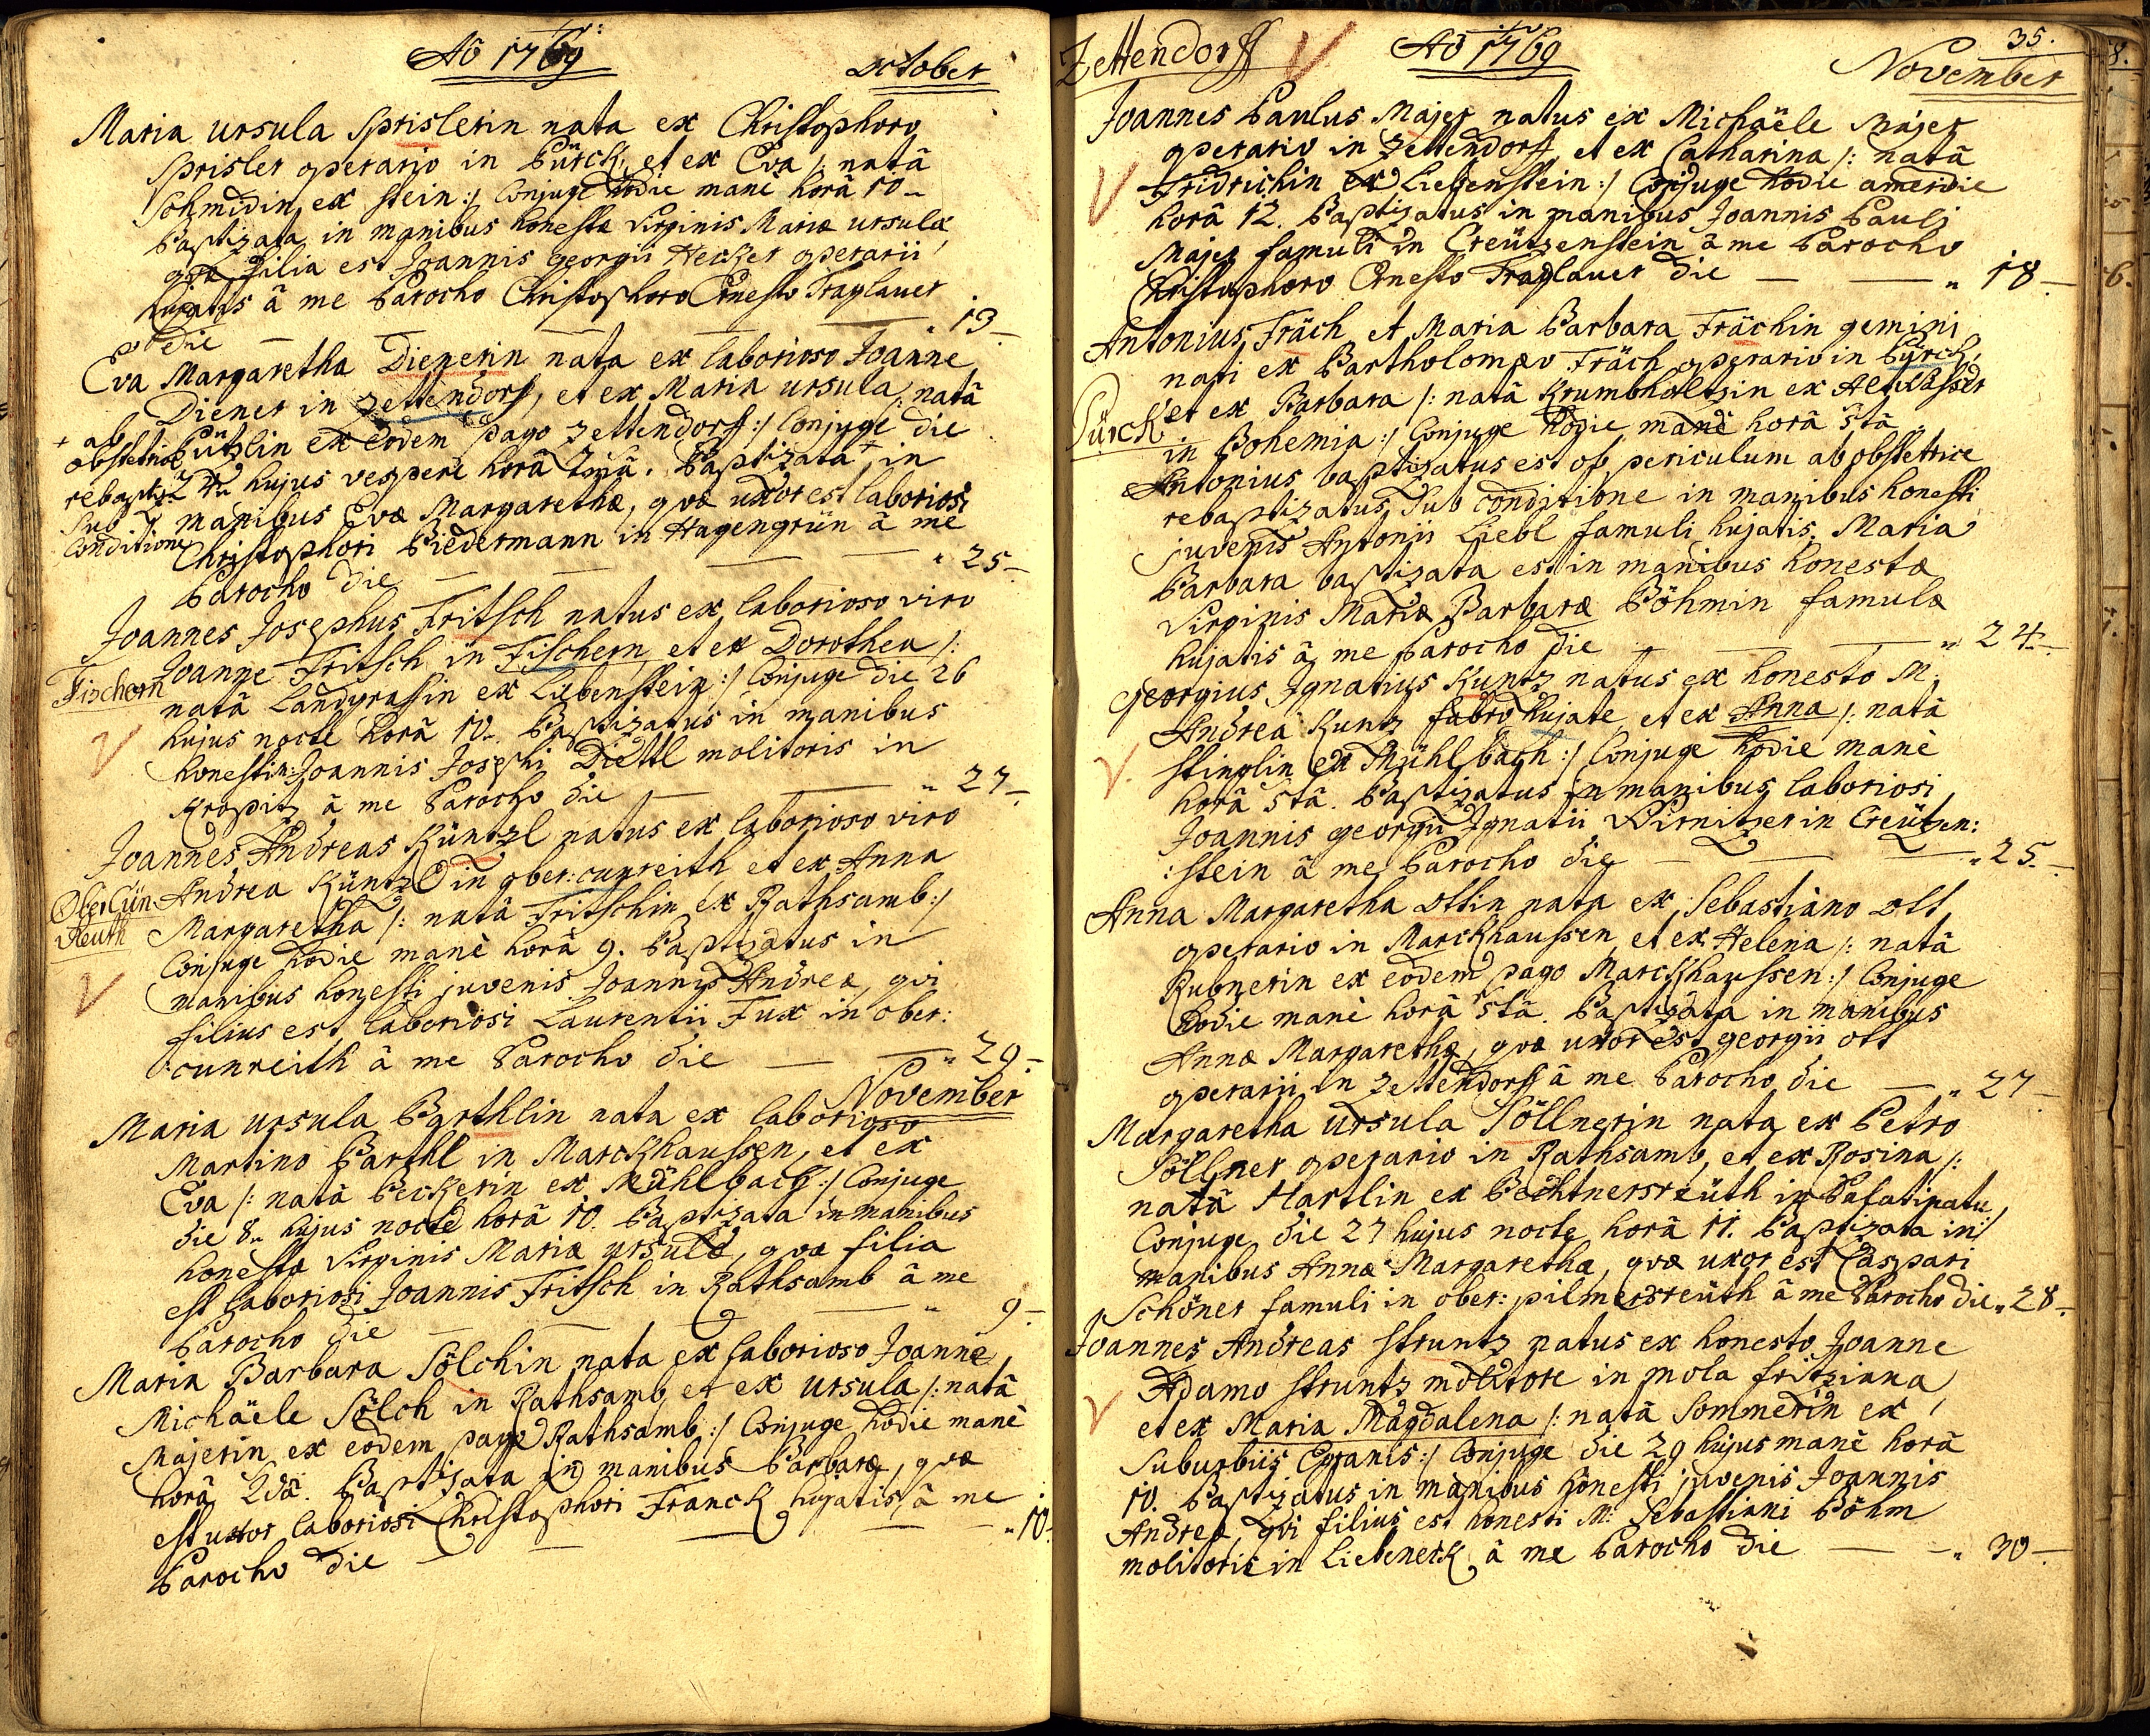 Aõ 1769
October
Maria ursula Sprislerin nata ex Christophoro
Sprisler operario in Pürck, et ex Eva /: natâ
Schmidin ex Stein :/ Conjuge hodie manè horâ 10
Baptizata in manibus honestæ Virginis Mariæ ursulæ
quæ filia est Joannis georgii Hecker operarii
hujatis â me Parocho Christophoro Ernesto Traglauer
die — 13
Eva Margaretha Dienerin nata ex laborioso Joanne
Diener in Zettendorf, et ex Maria ursula /: natâ
Pützlin ex eodem pago Zettendorf :/ Conjuge die
hujus vespere horâ Baptizata + in
manibus Evæ Margarethæ, quæ uxor est laboriosi
Christophori Biedermann in Hagengrün â me
Parocho die — 25
+ ab
obstetrice
rebaptiz
sub
Conditione
Joannes Josephus Fritsch natus ex laborioso viro
Joanne Fritsch in Fischern, et ex Dorothea /:
Fischern
natâ Landgrafin ex Liebenstein :/ Conjuge die 26
hujus nocte horâ 10. Baptizatus in manibus
honesti M: Joannis Josephi Diettl molitoris in
Kropitz â me Parocho die — 27
Joannes Andreas Küntzl natus ex laborioso viro
Andrea Küntzl in ober: cunreith et ex Anna
Ober Cün
Reuth
Margaretha /: natâ Fritschin ex Rathsamb :/
Conjuge hodie manè horâ 9. Baptizatus in
manibus honesti juvenis Joannis Andreæ, qui
filius est laboriosi Laurentii Fux in ober:
:cunreith â me Parocho die — 29
November
Maria ursula Barthlin nata ex laborioso
Martino Barthl in Marckhaussen, et ex
Eva /: natâ Beckerin ex Mühlbach :/ Conjuge
die 8 hujus nocte horâ 10. Baptizata in manibus
honestæ Virginis Mariæ ursulæ, quæ filia
est laboriosi Joannis Fritsch in Rathsamb â me
Parocho die — 9
Maria Barbara Sölchin nata ex laborioso Joanne
Michäele Sölch in Rathsamb, et ex ursula /: natâ
Majerin ex eodem pago Rathsamb :/ Conjuge hodie manè
horâ 2dâ. Baptizata in manibus Barbaræ, quæ
est uxor laboriosi Christophori Franck hujatis â me
Parocho die — 10
Zettendorff
Aõ 1769
35.
November
Joannes Paulus Majer natus ex Michäele Majer
operario in Zettendorff et ex Catharina /: natâ
Fridrichin ex Liebenstein :/ Conjuge hodie a meridie
horâ 12. Baptizatus in manibus Joannis Pauli
Majer famuli in Creützenstein â me Parocho
Christophoro Ernesto Traglauer die — 18
Antonius Fräch et Maria Barbara Frächin gemini
nati ex Bartholomæo Fräch operario in Pürck,
Pürck
et ex Barbara /: natâ Krumbholtzin ex
in Bohemia :/ Conjuge hodie manè horâ 5tâ
Antonius baptizatus est ob periculum ab obstetrice
rebaptizatus sub conditione in manibus honesti
juvenis Antonii Liebl famuli hujatis. Maria
Barbara baptizata est in manibus honestæ
Virginis Mariæ Barbaræ Böhmin famulæ
hujatis â me Parocho die — 24
Georgius Ignatius Kuntz natus ex honesto M:
Andrea Kuntz fabro hujate et ex Anna /: natâ
Stinglin ex Mühlbach :/ Conjuge hodie manè
horâ 5tâ. Baptizatus in manibus laboriosi
Joannis georgii Ignatii Pirnitzer in Creützen:
:stein â me Parocho die — 25
Anna Margaretha ottin nata ex Sebastiano ott
operario in Marckhaussen et ex Helena /: natâ
Rubnerin ex eodem pago Marckhaussen :/ Conjuge
hodie manè horâ 5tâ. Baptizata in manibus
Annæ Margarethæ, quæ uxor est georgii ott
operarii in Zettendorff â me Parocho die — 27
Margaretha ursula Söllnerin nata ex Petro
Söllner operario in Rathsamb, et ex Rosina /:
natâ Hartlin ex Bechtnersreüth in Palatinatu,
Conjuge die 27 hujus nocte horâ 11. Baptizata in
manibus Annæ Margarethæ, quæ uxor est Caspari
Schöner famuli in ober: pilmersreüth â me Parocho die 28
Joannes Andreas Struntz natus ex honesto Joanne
Adamo Struntz molitore in mola fritziana
et ex Maria Magdalena /: natâ Sommerin ex
Suburbiis Egranis :/ Conjuge die 29 hujus manè horâ
10. Baptizatus in manibus honesti juvenis Joannis
Andreæ, qui filius est honesti M: Sebastiani Böhm
molitoris in Liebeneck â me Parocho die — 30